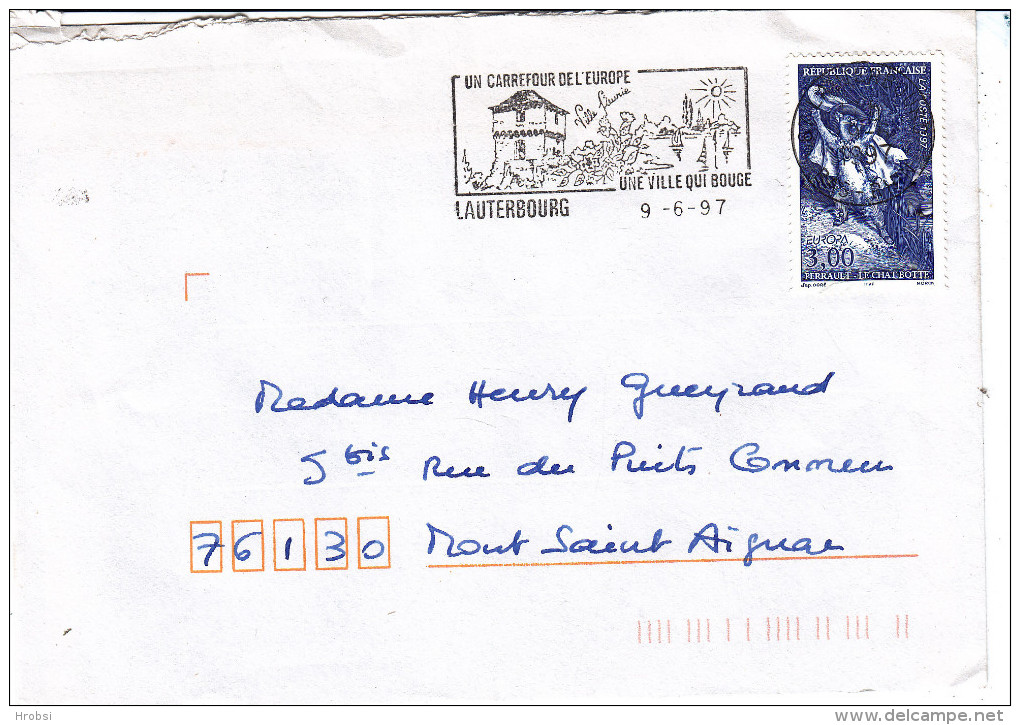 UN CARREFOUR DE L'EUROPE
Ville fleurie
UNE VILLE QUI BOUGE
LAUTERBOURG 9-6-97
RÉPUBLIQUE FRANÇAISE
LA POSTE 1997
EUROPA
3,00
PERRAULT - LE CHAT BOTTÉ
Madame Henry Gueyraud
5 bis Rue du Puits Commun
76130 Mont Saint Aignan
Hrobsi
www.delcampe.net